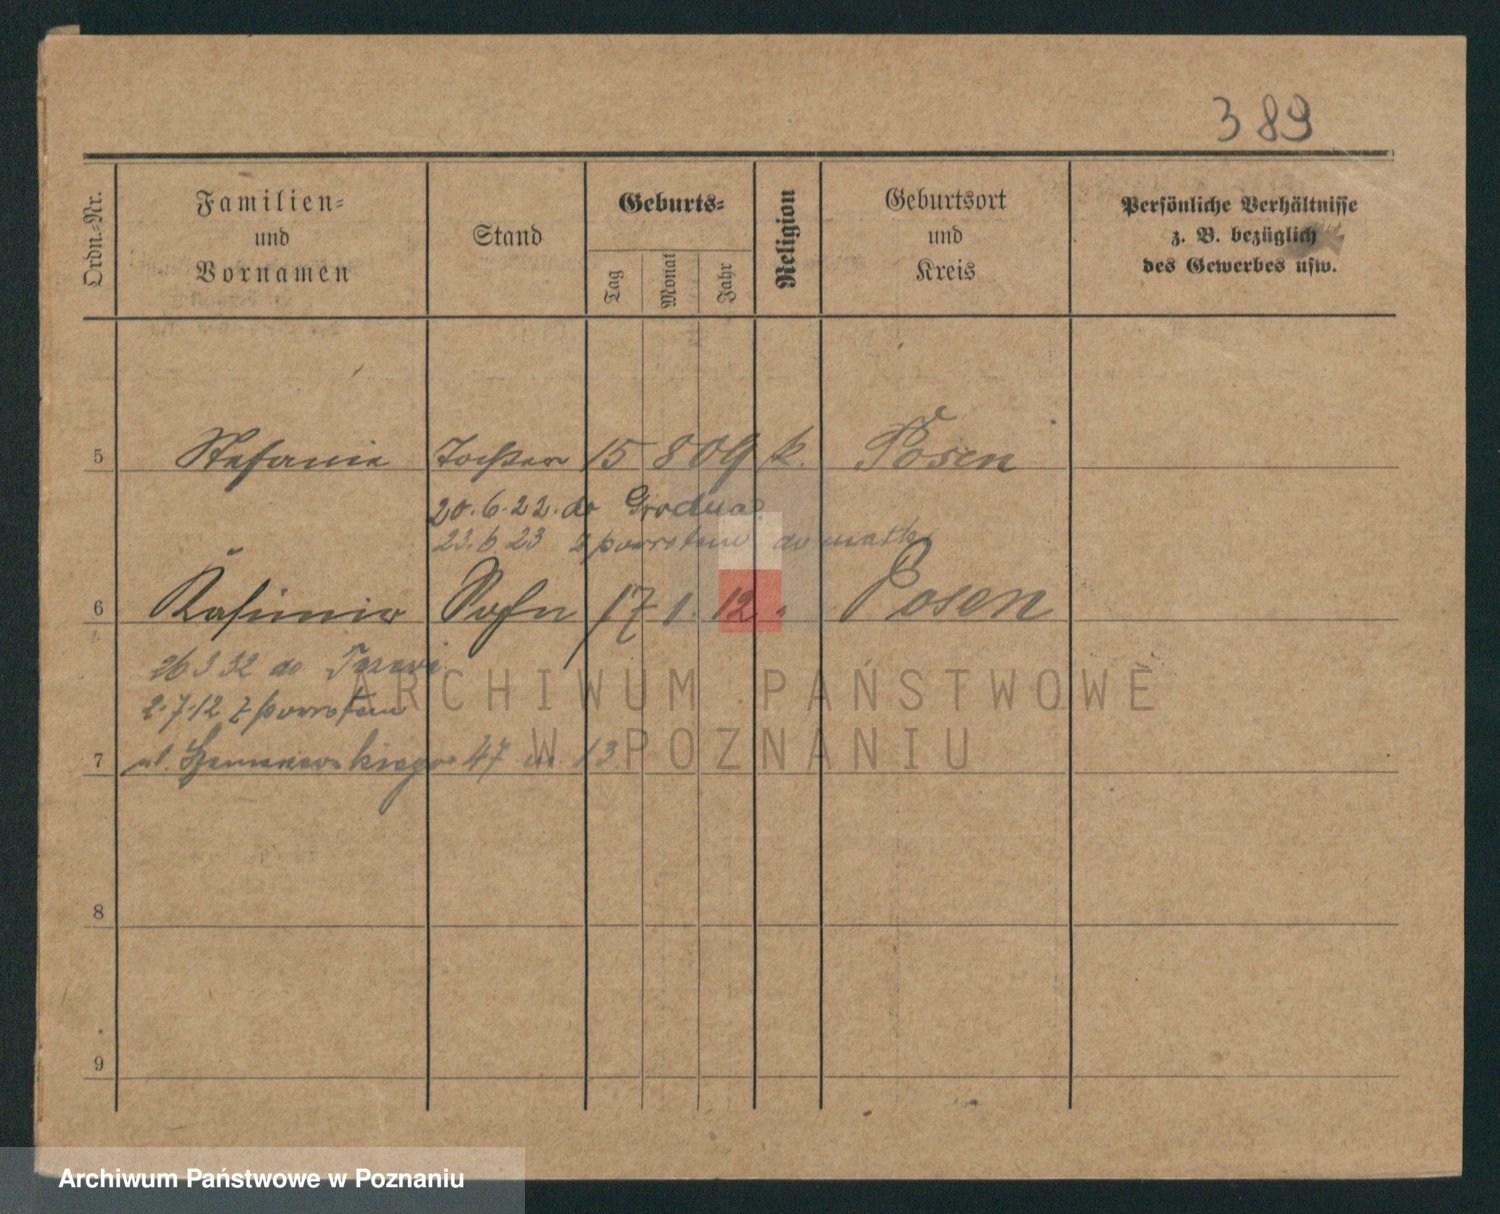 389
Ordn.-Nr.
Familien-
und
Vornamen
Stand
Geburts-
Tag
Monat
Jahr
Religion
Geburtsort
und
Kreis
Persönliche Verhältnisse
z. B. bezüglich
des Gewerbes usw.
5 Stefanie Tochter 15 8 09 k. Posen
20.6.22. do
23.6 23 z powrotem do matki
6 Kasimir Sohn 17 1. 12 " Posen
26 3 32 do
2.7.12 z powrotem
7 ul. 47 m. 13
8
9
ARCHIWUM PAŃSTWOWE
W POZNANIU
Archiwum Państwowe w Poznaniu